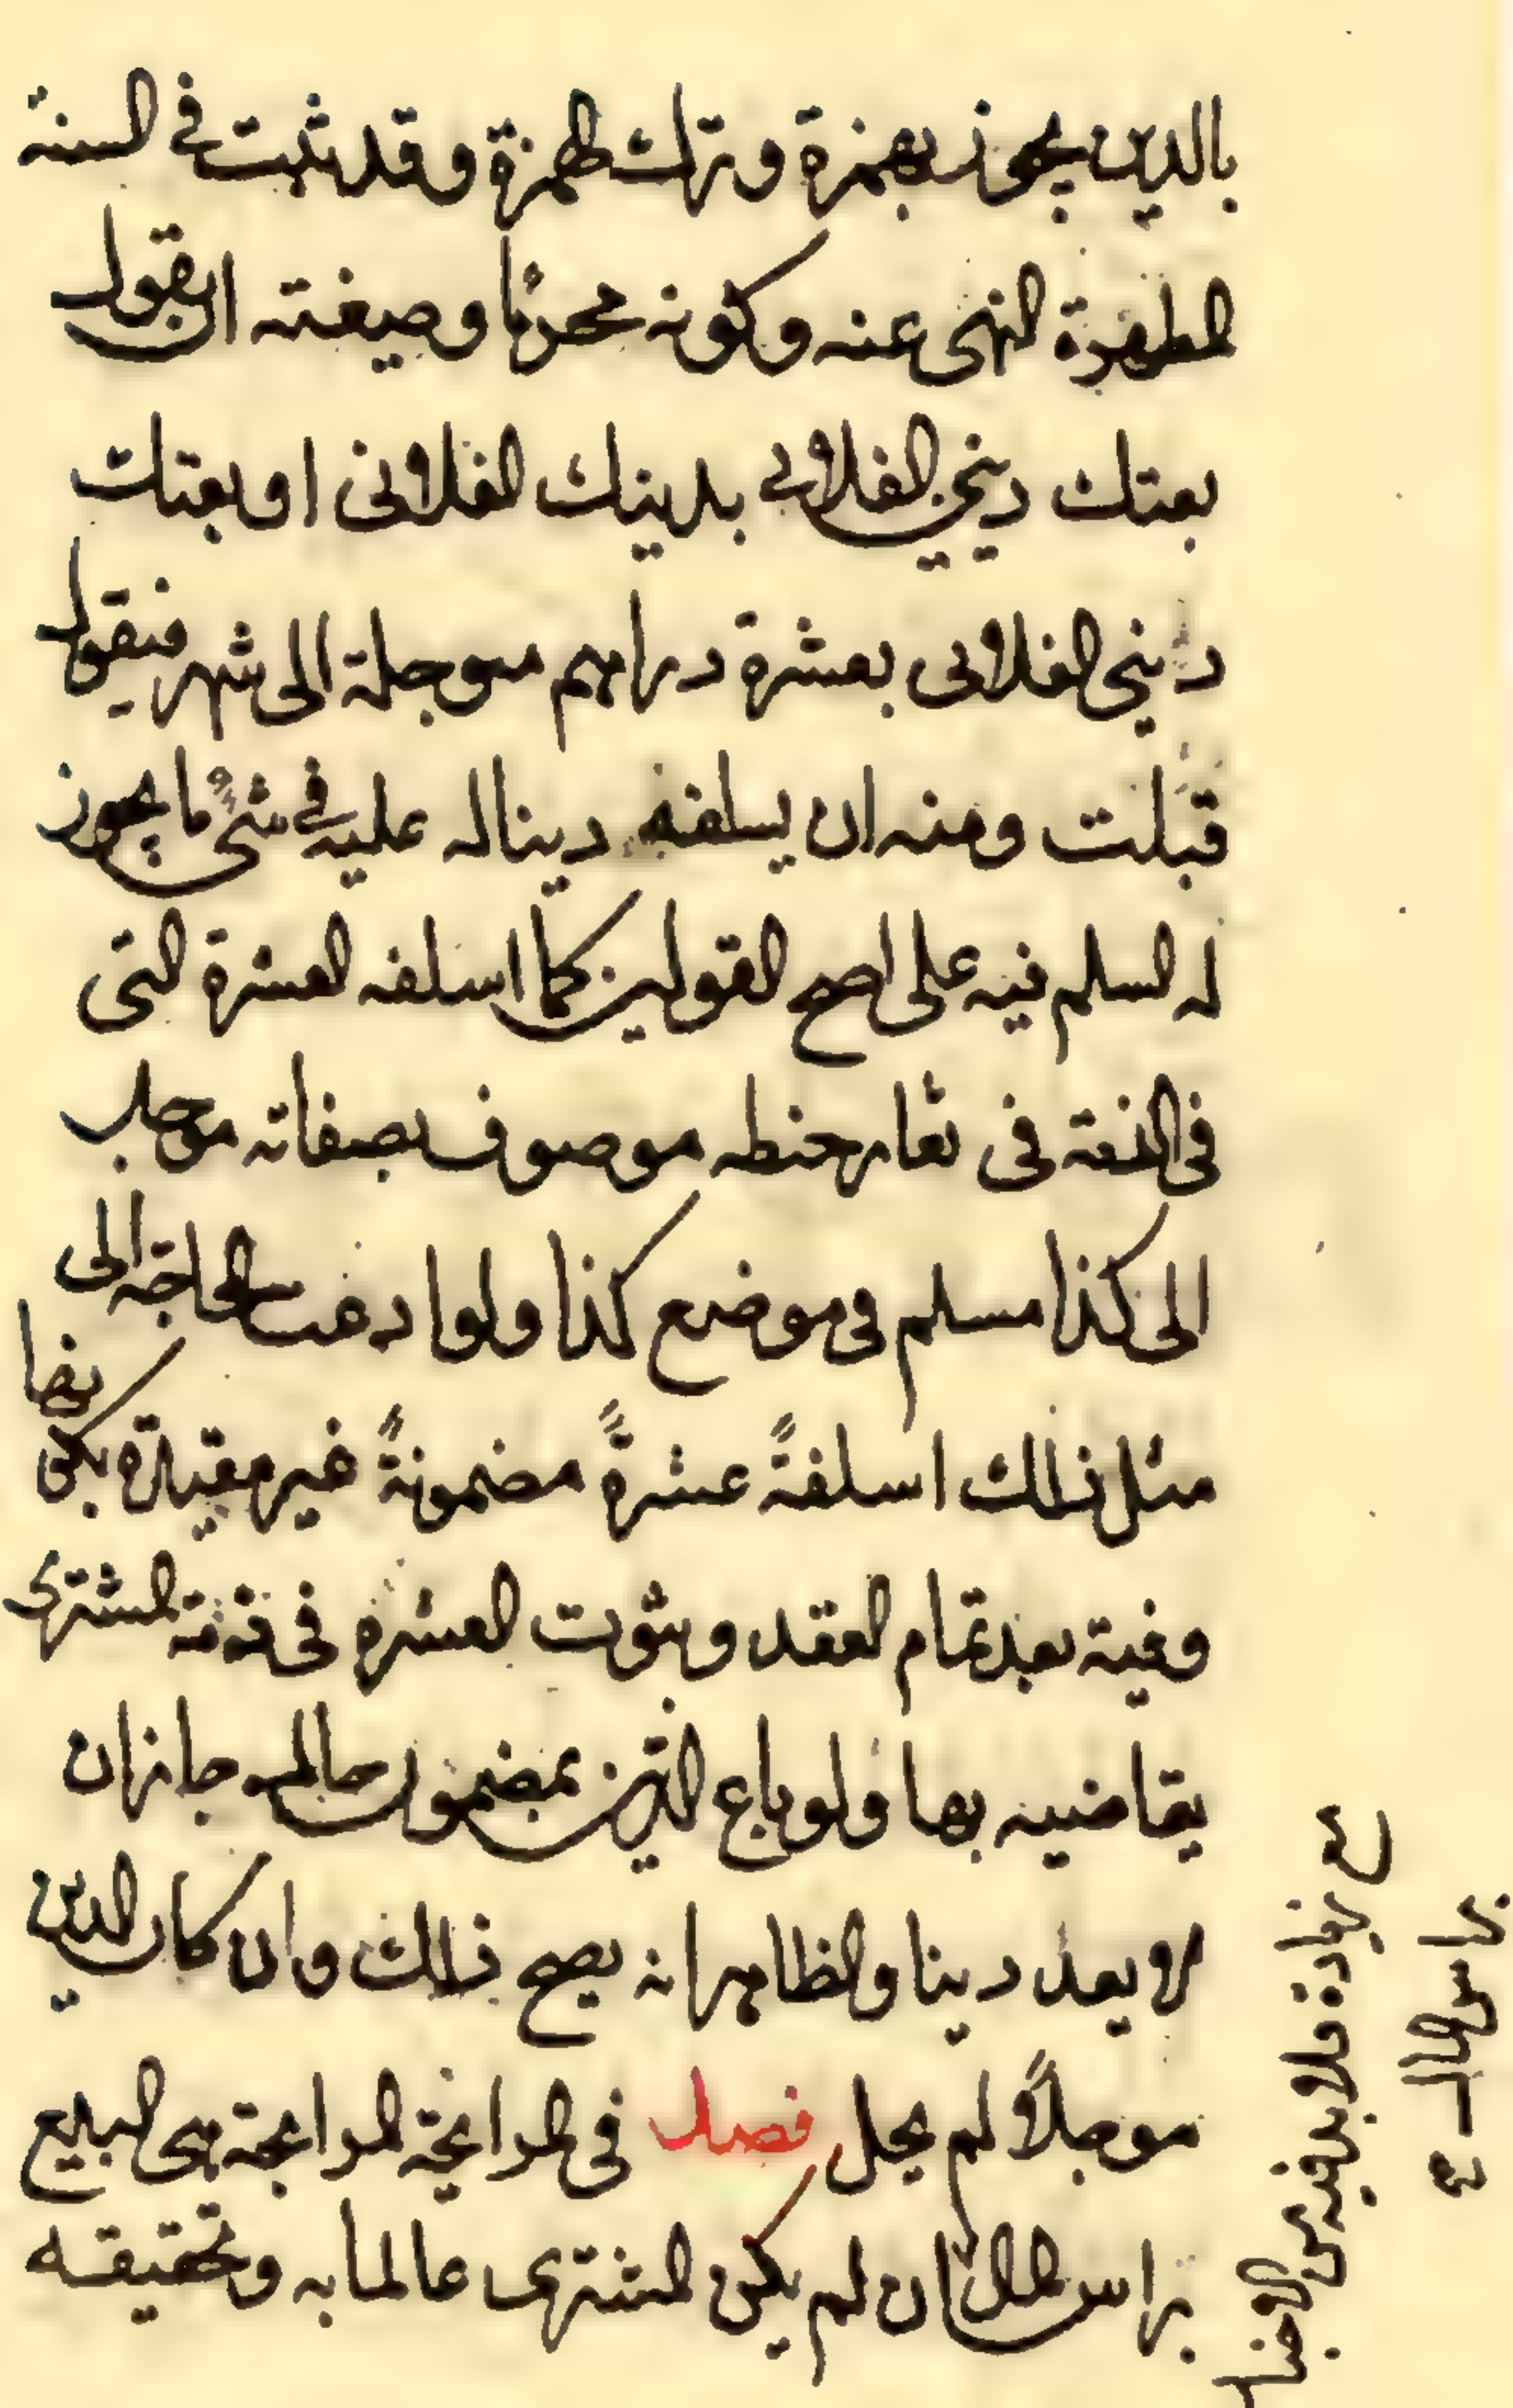 بالدين يجوز بهمزة وترك لهمزة وقد ثبت في السنة
المطهرة النهى عنه وكونه محرمًا وصيغته ان يقول
بعتك ديني الفلاني بدينك الفلانى او بعتك
دينى الفلانى بعشرة دراهم موجلة الى شهر فيقول
قبلت ومنه ان يسلفه دينا له عليه في شئ ما يجوز
له السلم فيه على اصح القولين كما اسلفه العشرة التى
فى الذمة فى تغار حنطه موصوف بصفاته موجل
الى كذا مسلم فى موضع كذا ولو ادعت الحاجة الى
مثل ذلك اسلفةً عشرةً مضمونةً غير مقيدة بكونها
وفية بعد تمام العقد وبثوت العشره فى ذمة المشترى
يقاضيه بها ولو باع الدين بمضمون حال جاز ان
لا يعد دينا والظاهر انه يصح ذلك وان كان الدين
موجلاً لم يحل فصل فى المرابحة المرابحة هى البيع
براس المال ان لم يكن المشترى عالما به وتحقيقه
مع زيادة فلا بد فيه من الاخبار
براس المال